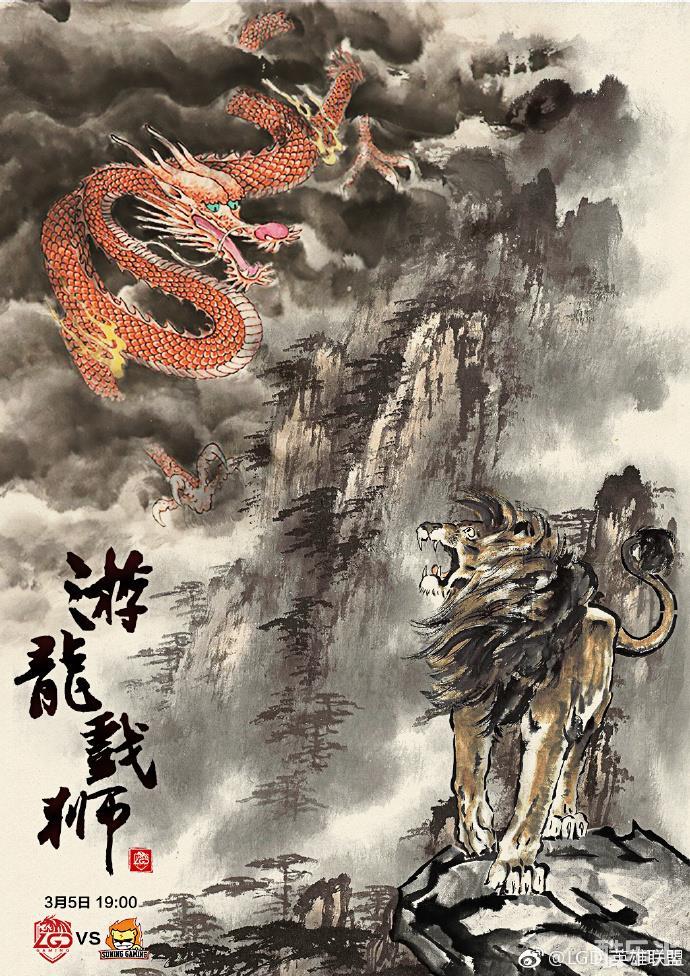 游龍戲狮
LGD
3月5日 19:00
LGD
GAMING
VS
SUNING GAMING
@LGD英雄联盟